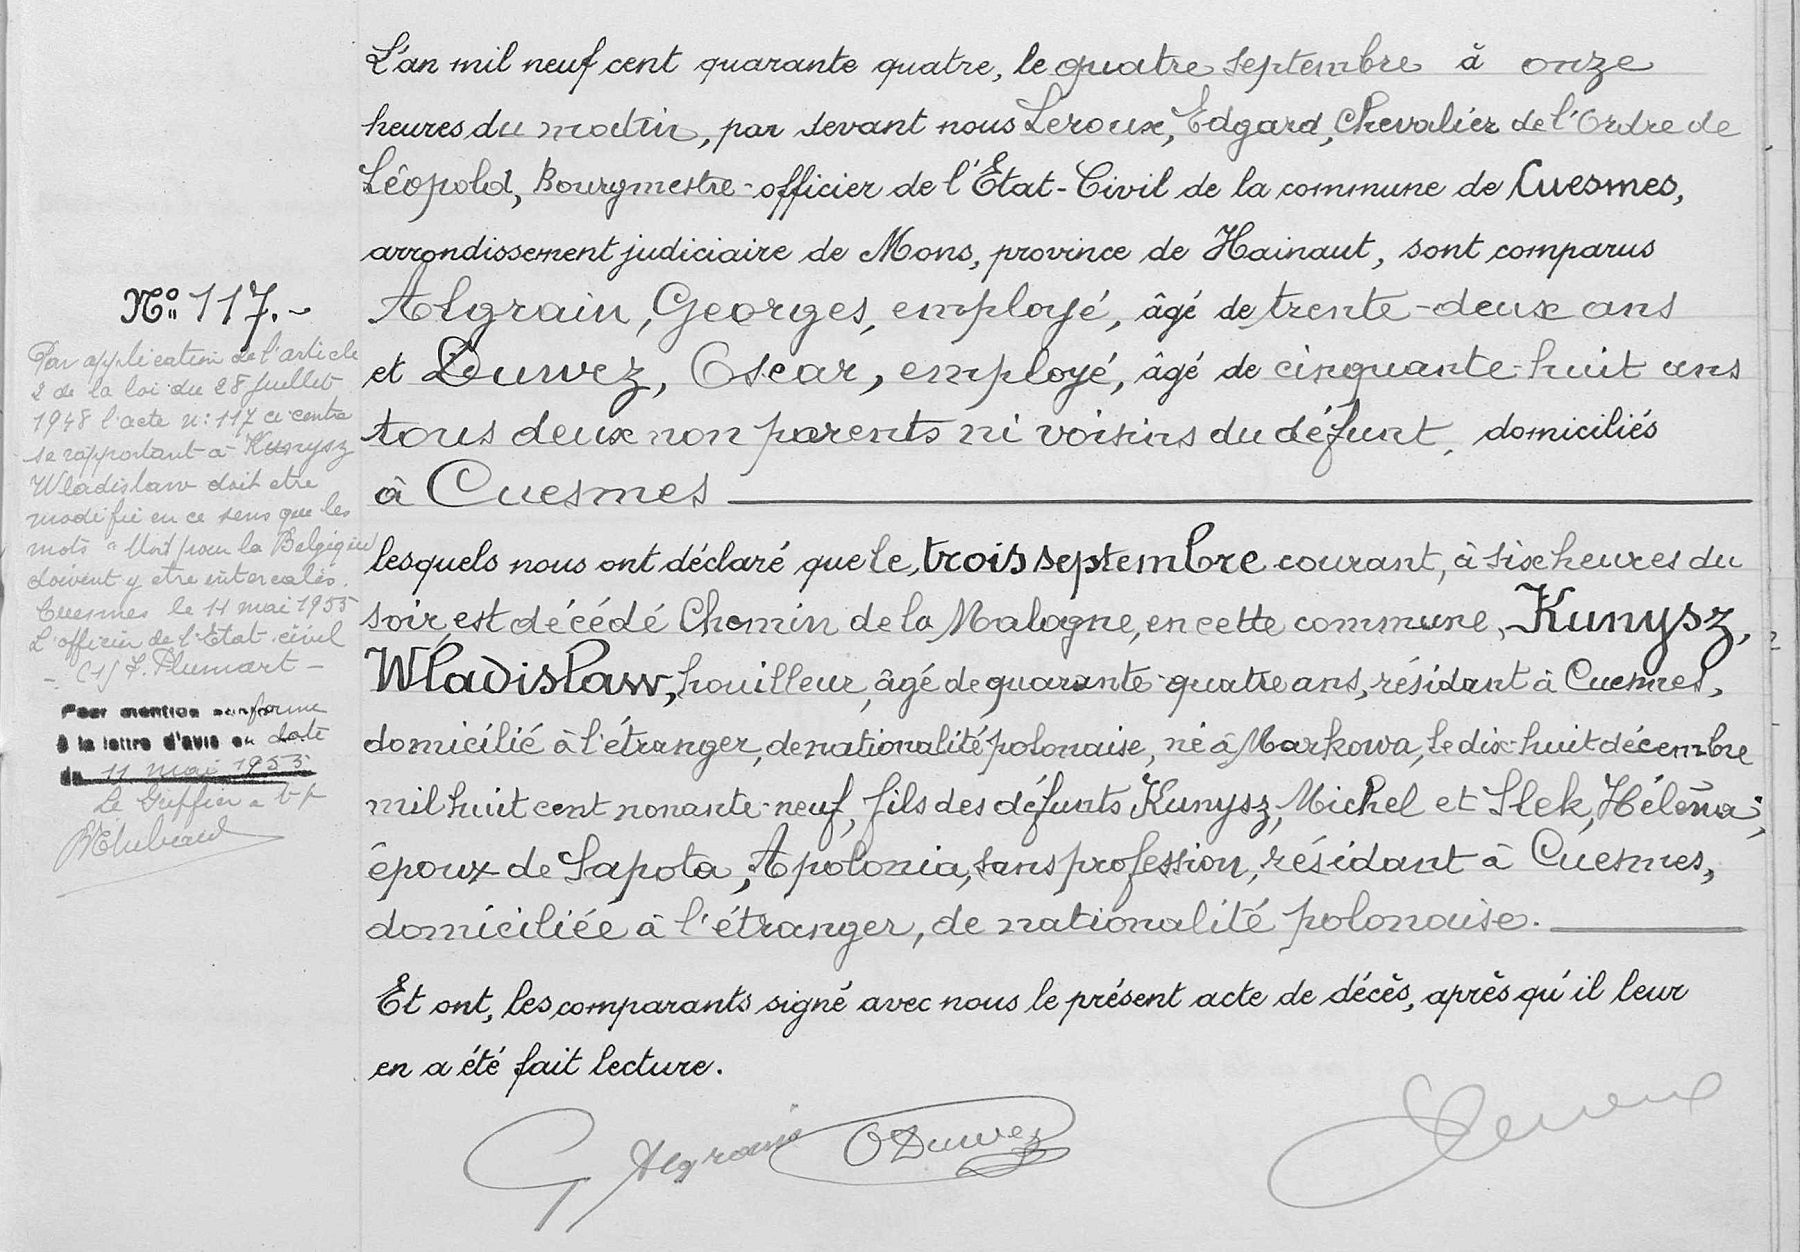 L'an mil neuf cent quarante quatre, le quatre septembre à onze
heures du matin, par devant nous Leroux, Edgard, Chevalier de l'Ordre de
Léopold, Bourgmestre-officier de l'Etat-Civil de la commune de Cuesmes,
arrondissement judiciaire de Mons, province de Hainaut, sont comparus
Algrain, Georges, employé, âgé de trente-deux ans
et Duwez, Oscar, employé, âgé de cinquante-huit ans
tous deux non parents ni voisins du défunt, domiciliés
à Cuesmes
lesquels nous ont déclaré que le trois septembre courant, à six heures du
soir, est décédé Chemin de la Malogne, en cette commune, Kunysz,
Wladislaw, houilleur, âgé de quarante-quatre ans, résidant à Cuesmes,
domicilié à l'étranger, de nationalité polonaise, né à Markowa, le dix-huit décembre
mil huit cent nonante-neuf, fils des défunts Kunysz, Michel et Slek, Héléna,
époux de Sapota, Apolonia, sans profession, résidant à Cuesmes,
domiciliée à l'étranger, de nationalité polonaise.
Et ont, les comparants signé avec nous le présent acte de décès, après qu'il leur
en a été fait lecture.
G Algrain ODuwez Leroux
No. 117.-
Par application de l'article
2 de la loi du 28 Juillet
1948 l'acte n: 117 ci contre
se rapportant à Kunysz
Wladislaw doit etre
modifié en ce sens que les
mots "Mort pour la Belgique"
doivent y etre intercalés.
Cuesmes le 11 mai 1955
L'officier de l'Etat civil
(s) F. Plumart -
Pour mention conforme
à la lettre d'avis en date
du 11 mai 1955
Le Greffier